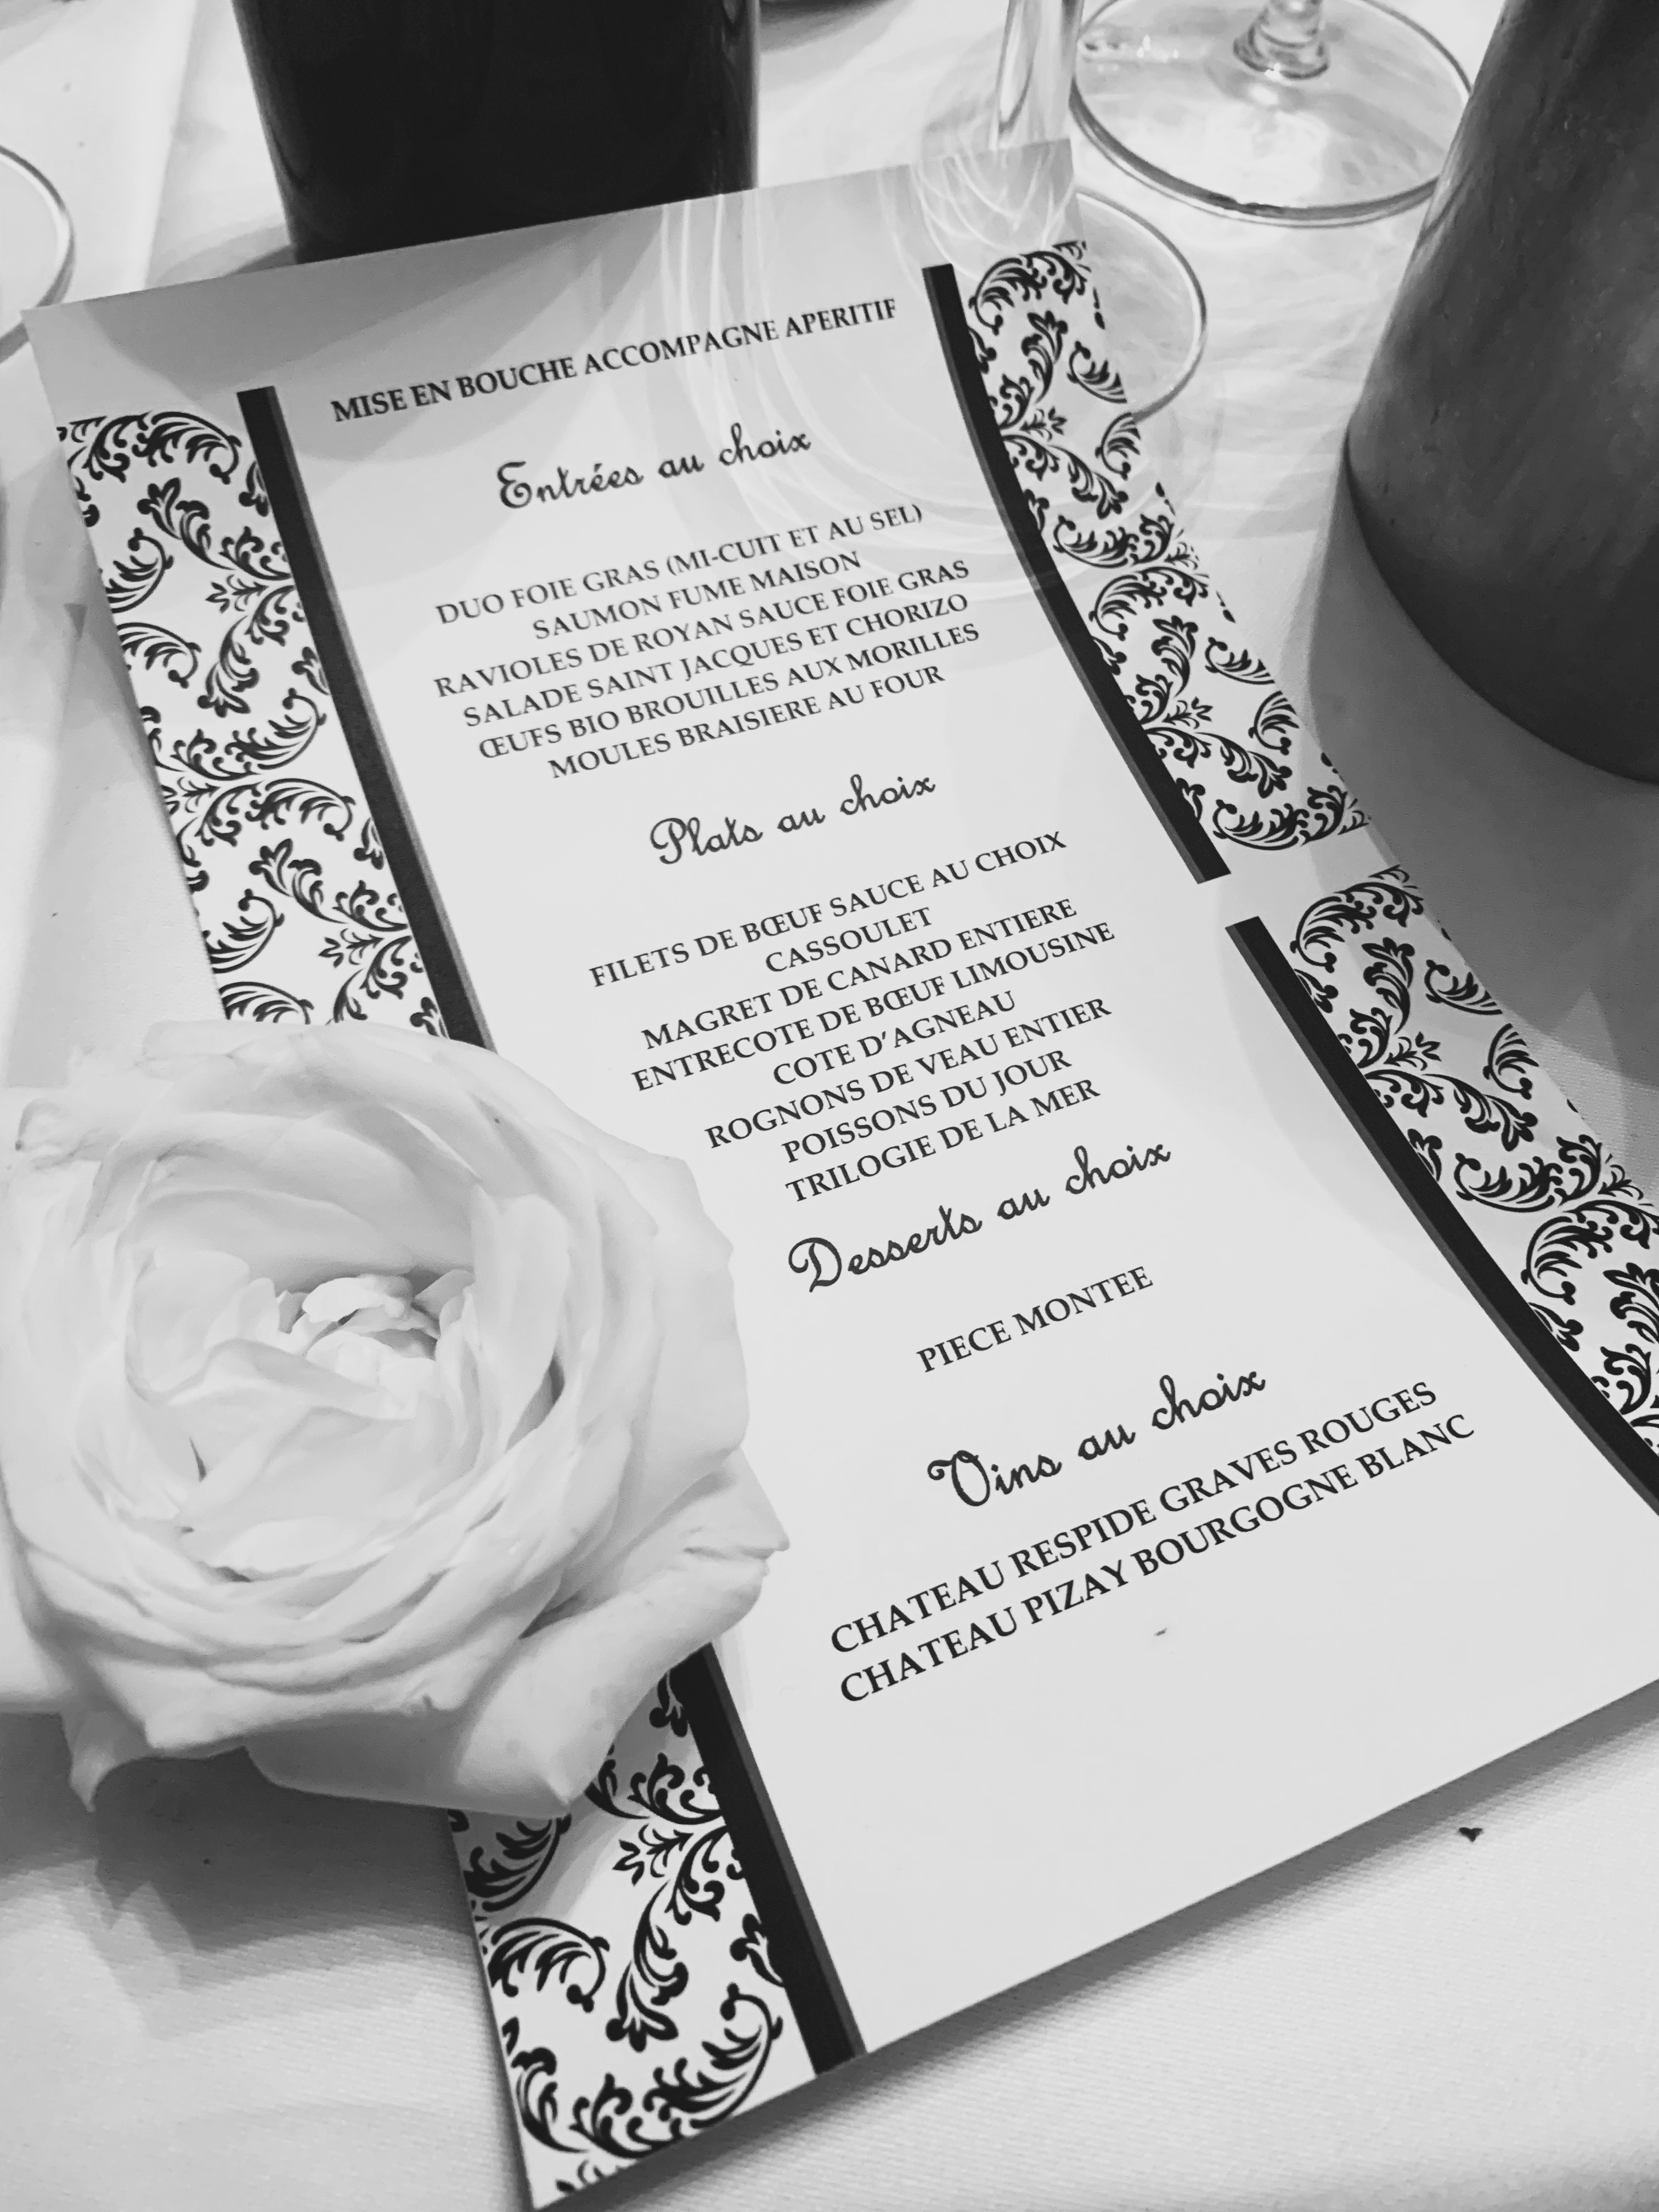 MISE EN BOUCHE ACCOMPAGNE APERITIF
Entrées au choix
DUO FOIE GRAS (MI-CUIT ET AU SEL)
SAUMON FUME MAISON
RAVIOLES DE ROYAN SAUCE FOIE GRAS
SALADE SAINT JACQUES ET CHORIZO
ŒUFS BIO BROUILLES AUX MORILLES
MOULES BRAISIERE AU FOUR
Plats au choix
FILETS DE BŒUF SAUCE AU CHOIX
CASSOULET
MAGRET DE CANARD ENTIERE
ENTRECOTE DE BŒUF LIMOUSINE
COTE D'AGNEAU
ROGNONS DE VEAU ENTIER
POISSONS DU JOUR
TRILOGIE DE LA MER
Desserts au choix
PIECE MONTEE
Vins au choix
CHATEAU RESPIDE GRAVES ROUGES
CHATEAU PIZAY BOURGOGNE BLANC